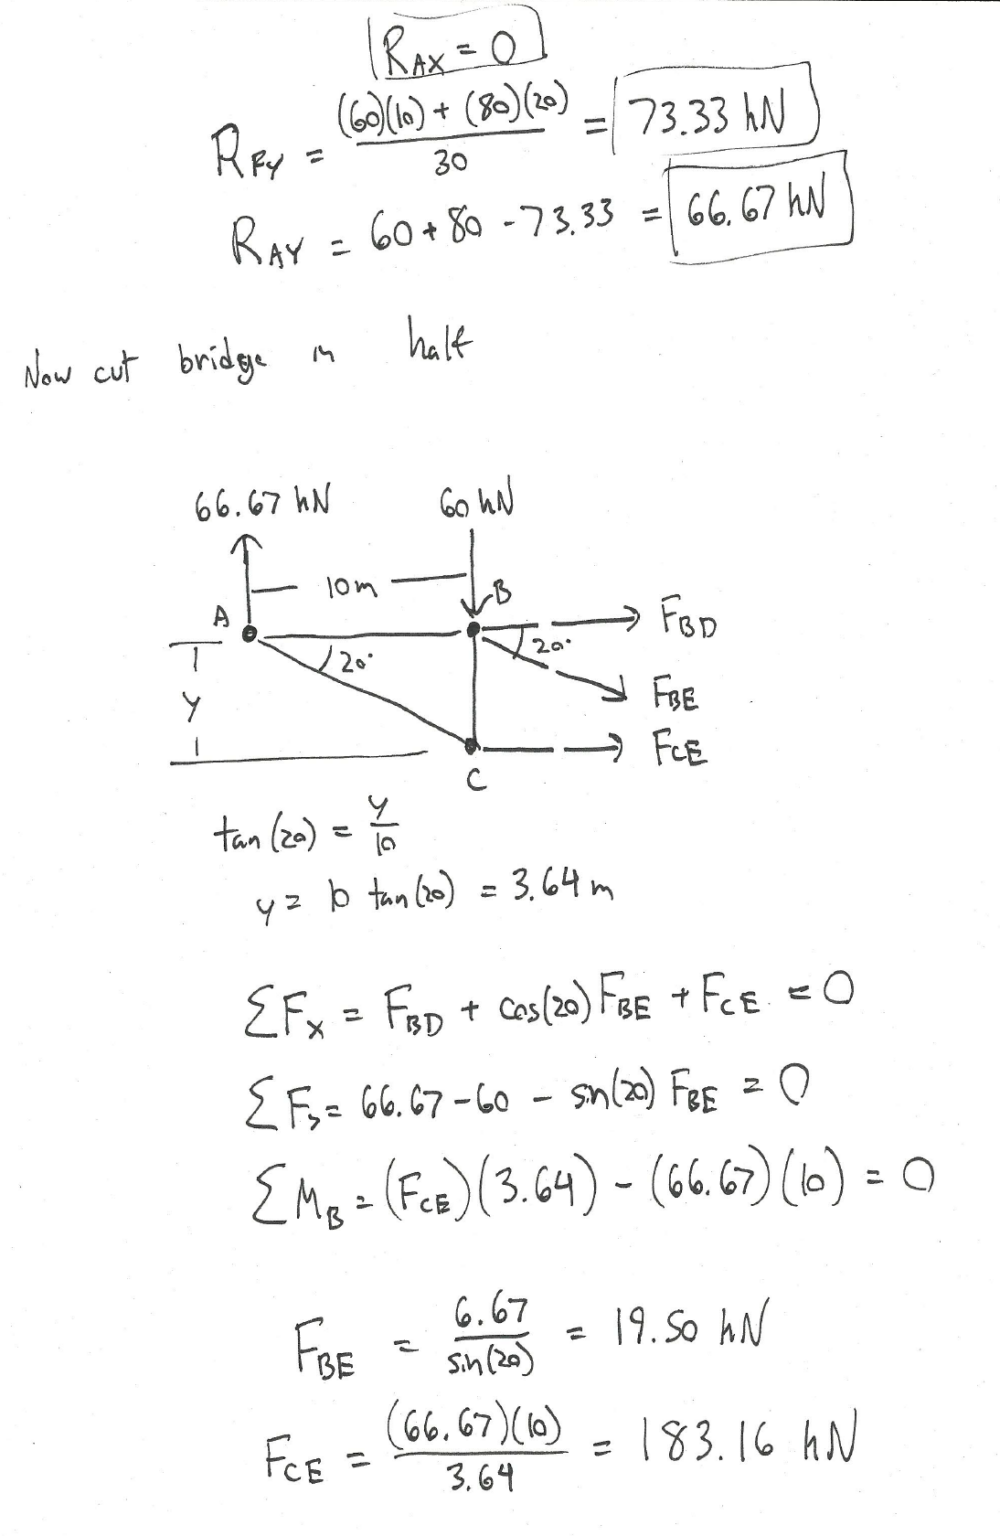 R_AX = 0
R_FY = (60)(10) + (80)(20) / 30 = 73.33 kN
R_AY = 60 + 80 - 73.33 = 66.67 kN
Now cut bridge in half
66.67 kN 60 kN
10m
A B F_BD
20° 20°
y F_BE
F_CE
C
tan(20) = y/10
y = 10 tan(20) = 3.64 m
ΣF_x = F_BD + cos(20) F_BE + F_CE = 0
ΣF_y = 66.67 - 60 - sin(20) F_BE = 0
ΣM_B = (F_CE)(3.64) - (66.67)(10) = 0
F_BE = 6.67 / sin(20) = 19.50 kN
F_CE = (66.67)(10) / 3.64 = 183.16 kN